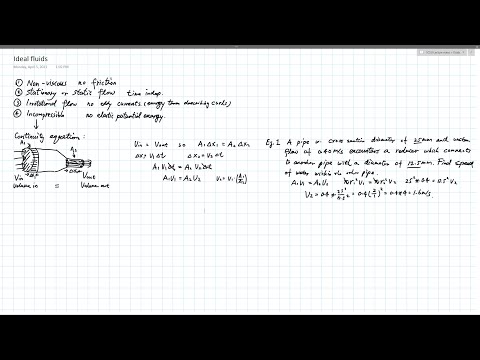 Ideal fluids
① Non-viscous no friction
② Stationary or static flow time indep.
③ Irrotational flow no eddy currents (energy turn describing circle)
④ Incompressible no elastic potential energy.
Continuity equation:
A₁
A₂
Δx₁
Δx₂
Vin
Vout
Volume in = Volume out
Vin = Vout so A₁Δx₁ = A₂Δx₂
Δx₁ = V₁Δt Δx₂ = V₂Δt
A₁V₁Δt = A₂V₂Δt
A₁V₁ = A₂V₂ V₂ = V₁(A₁/A₂)
Eg.1 A pipe cross section diameter of 25mm and water
flow at 0.40 m/s encounters a reducer which connects
to another pipe with a diameter of 12.5mm. Find speed
of water within the other pipe.
A₁V₁ = A₂V₂ πr₁²V₁ = πr₂²V₂ 25² * 0.4 = 12.5² V₂
V₂ = 0.4 * 25²/12.5² = 0.4(2/1)² = 0.4*4 = 1.6m/s